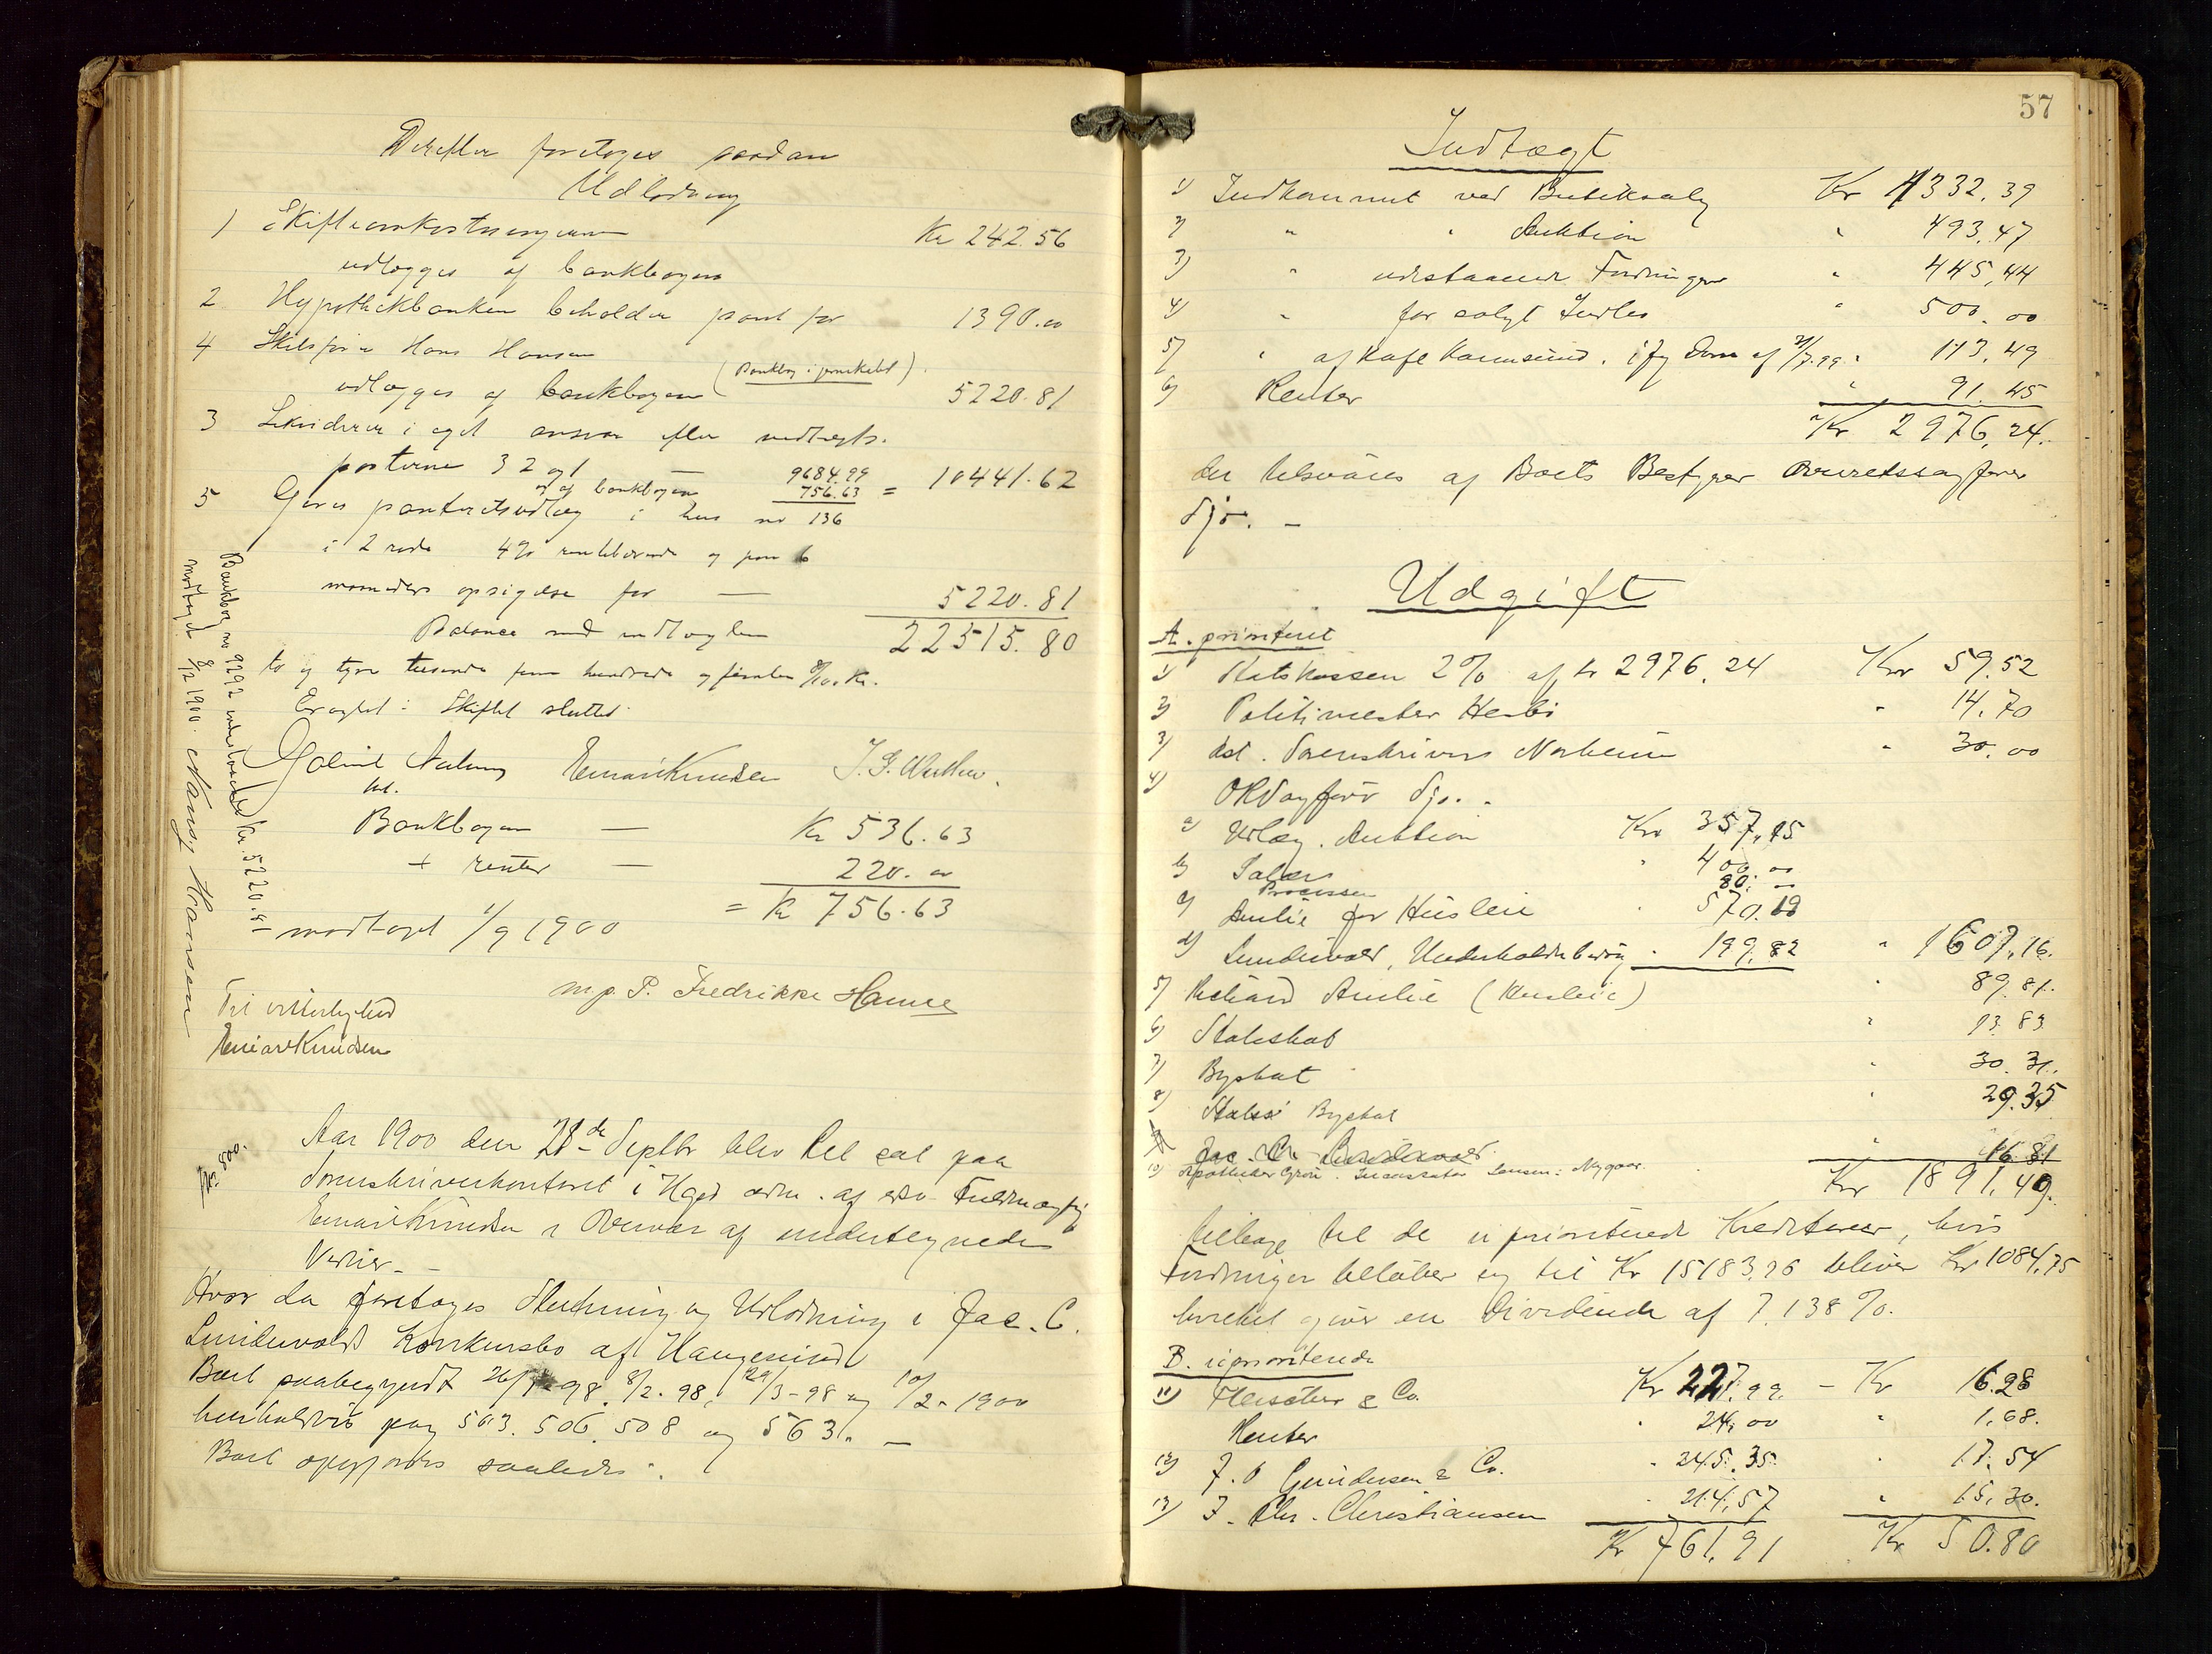 Derefter foretoges saadan
Udlodning
1 Skifteomkostningerne Kr 242.56
udlægges af bankbogen
2 Hypothekbanken beholder pant for 1390.00
4 Skibsfører Hans Hansen
udlægges af bankbogen (Bankbog i jernskabet) 5220.81
3 Likviderer i eget ansvar efter indtægts-
posterne 3 2 og 1 — 9684.99
og af bankbogen 756.63 = 10441.62
5 Gives panteretsudlæg i hus no 136
i 2 rode 4% rentebærende og paa 6
maaneders opsigelse for — 5220.81
Balance med indtægten 22515.80
to og tyve tusende fem hundrede og femten 80/100 Kr.
Eragtet: Skiftet sluttet.
Einar Knudsen
Bankbogen — Kr 536.63
+ renter — 220.00
= Kr 756.63
modtaget 1/9 1900
m.p.P. Fredrikke Hansen
Til vitterlighed
Einar Knudsen
Bankbog no 9292 indestaaende Kr. 5220.81
modtaget 8/12 1900. Nanny Hansen
Aar 1900 den 28de Septbr blev Ret sat paa
Sorenskriverkontoret i Hgsd adm. af edsv. Fuldmægtig
Einar Knudsen i Overvær af undertegnede
Vidner. –
Hvor da foretoges Slutning og Udlodning i Jac. C.
Lindevolds Konkursbo af Haugesund
Boet paabegyndt 26/1-98. 8/2-98, 29/3-98 og 10/2-1900
henholdsvis pag 503. 506. 508 og 563. –
Boet opgjordes saaledes:
57
Indtægt
1) Indkommet ved Butiksalg Kr 1332.39
2) " " Auktion " 493.47
3) " udestaaende Fordringer " 445,44
4) " for solgt Indbo " 500.00
5) " af Kafe Karmsund. ifg Dom af 21/7.99. " 113,49
6) Renter " 91.45
Kr 2976,24.
der tilsvares af Boets Bestyrer Overretssagfører
Sjo. –
Udgift
A. prioriteret
1) Statskassen 2% af kr 2976,24 Kr 59,52
2) Politimester " 14,70
3) Sorenskriver Norheim " 30.00
4) ORSagfører Sjo. -
a) Udlæg. Auktion Kr 357,15
b) Salær " 400.00
Processen 80.00
c) Amlie for Husleie " 570.19
d) Lindevold, Underholdsbidrag " 199,82 " 1607,16.
5) Rickard Amlie (Husleie) " 89.81.
6) Statsskat " 13.83
7) Byskat " 30.31.
8) Byskat 29.35
Jac. Ch. Lindevold
10) Apotheker Grøn. Incassator Jensen: Nygaar. " 16.81
Kr 1891,49.
tilbage til de uprioriterede Kreditorer, hvis
Fordringer beløber sig til Kr 15183,26 bliver Kr 1084,75
hvilket giver en Dividende af 7,138%.
B. uprioriterede
11) Fleischer & Co. Kr 227.99. – Kr 16.28
Renter " 24.00 " 1,68.
12) J. O Gundersen & Co. " 245.35. " 17.54
13) J. Chr. Christiansen " 214,57 " 15,30.
Kr 761,91 Kr 50.80